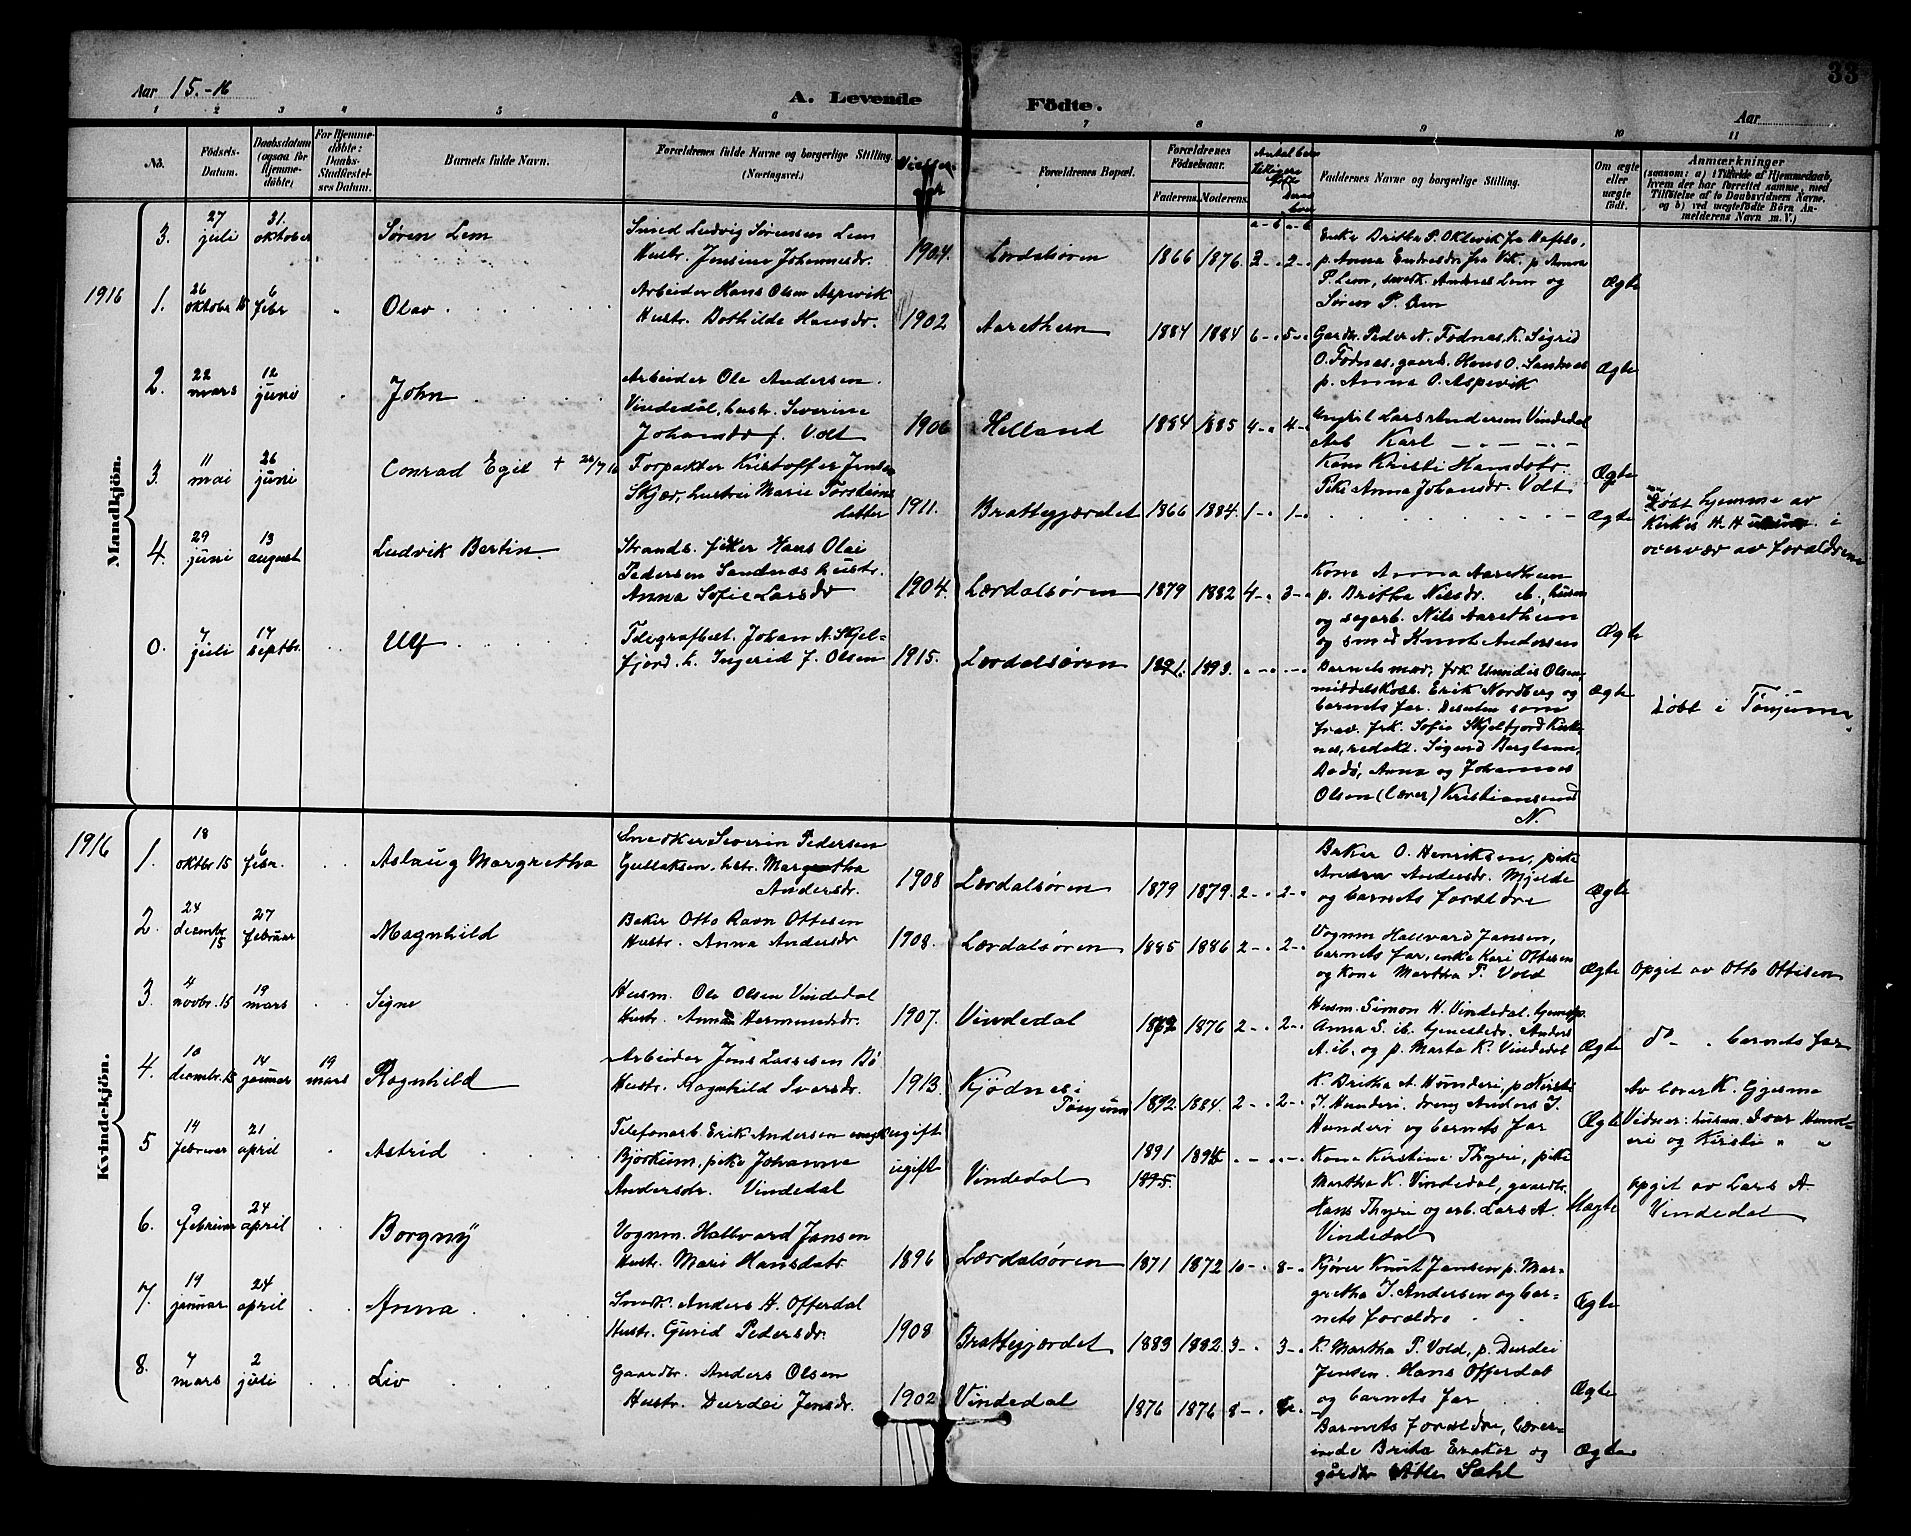 33
Aar 15.-16
A. Levende Födte.
Aar
1 2 3 4 5 6 7 8 9 10 11
No.
Födsels-Datum.
Daabsdatum (ogsaa for Hjemme-döbte)
For Hjemme-döbte: Daabs-Stadfæstel-ses Datum.
Barnets fulde Navn.
Forældrenes fulde Navne og borgerlige Stilling. (Næringsvei.)
Forældrenes Bopæl.
Forældrenes Födselsaar.
Faderens. Moderens.
Faddernes Navne og borgerlige Stilling.
Om ægte eller uægte födt.
Anmærkninger
(saasom: a) i Tilfælde af Hjemmedaab, hvem der har forrettet samme, med Tilföielse af to Daabsvidners Navne. og b) ved uægtefödte Börn Anmelderens Navn m. V.)
Mandkjön.
3. 27 juli 31. oktober Søren Lem
Smed Ludvig Sørensen Lem
Hustr. Jensine Johannesdr. 1904. Lærdalsøren 1866 1876. 2-. 2-.
Enke Britha P. Oklevik fra Hafslo,
p. Anna Endresdr. fra Vik, p. Anna
P. Lem, smedk. Andreas Lem og
Søren P. Lem Ægte
1916
1. 26 oktober 15 6 febr Olav
Arbeider Hans Olsen Aspevik
Hustr. Bothilde Hansdr. 1902 Aarethern 1884 1884 6-. 5-.
Gardbr. Peder N. Fodnes, k. Sigrid
O. Fodnes, gaardb. Hans O. Sandnes
p. Anna O. Aspevik Ægte
2. 22 mars 12 juni John
Arbeider Ole Andersen
Vindedal, hustr. Severine
Johansdr f. Vdt 1906 Helland 1884 1885 4-. 4-.
Ungkl Lars Andersen Vindedal
Arb Karl - - - - -
Kone Kristi Hansdtr.
Pike Anna Johansdr. Vdt Ægte
3. 11 mai 26 juni Conrad Egil + 22/7 16
Forpakter Kristoffer Jensen
Skjær, hustrui Marie Torsteins
datter 1911. Brattegjærdet 1866 1884. 1-. 1-. Ægte
Døbt hjemme av
Kirkes. H. i
overvær av forældrene
4. 29 juni 13 august Ludvik Bertin
Strands. fisker Hans Olai
Pedersen Sandnes hustr.
Anna Sofie Larsdr 1904. Lærdalsøren 1879 1882 4-. 3-.
Kone Anna Aarethun
p. Britha Nilsdr. ib., husm
og sagarb. Nils Aarethun
og smed Knut Andersen Ægte
0. 7 juli 17 septbr. Ulf
Telegrafbest. Johan A. Skjel-
fjord, h. Ingerid f. Olsen 1915. Lærdalsøren 1891. 1893.
Barnets mor, frk Unndis Olsen,
middelskolb. Erik Nordberg og
barnets far. Desuten som
frav. frk. Sofie Skjelfjord Kirke-
nes, redakt. Sigurd Berglann,
Bodø, Anna og Johannes
Olsen (lærer) Kristiansund
N. Ægte
Døbt i Tønjum.
Kvindekjön.
1916
1. 18 oktbr 15 6 febr. Aslaug Margretha
Snedker Severin Pedersen
Gullaksen, hstr. Margretha
Andersdr. 1908 Lærdalsøren 1879 1879. 2-. 2-.
Baker O. Henriksen, pike
Andrea Andersdr. Mjelde
og barnets forældre Ægte
2. 24 decembr 15 27 februar Magnhild
Baker Otto Ravn Ottesen
Hustr. Anna Andersdr 1908. Lærdalsøren 1885 1886 2-. 2-.
Vognm Hallvard Jansen,
barnets far, enke Kari Ottesen
og Kone Martha P. Vold Ægte
Opgit av Otto Ottesen
3. 4 novbr. 15 19 mars Signe
Husm. Ole Olsen Vindedal
Hustr. Anna Hermundsdr. 1907. Vindedal 1876 2-. 2-.
Husm. Simon H. Vindedal, tjenestp.
Anna S. ib, tjenestedr. Anders
A. ib. og p. Marta K. Vindedal Ægte
do - . barnets far
4. 10 decembr. 15 14 januar 19 mars Ragnhild
Arbeider Jens Lassesen Bø
Hustr. Ragnhild Ivarsdr. 1913. Kjødnes i
Tønjum 1892. 1884. 2-. 2-.
K. Britha A. Hunderi, p. Kirsti
I. Hunderi, dreng Anders I.
Hunderi og barnets far Ægte
Av lærer K. Gjesme
Vidner: husm. Ivar Hund-
eri og Kirsti " "
5 14 februar 21 april Astrid
Telefonarb. Erik Andersen ungk ugift
Bjørkum, pike Johanna ugift
Andersdr. Vindedal Vindedal 1891 1895.
Kone Kirstine Thyri, pike
Martha K. Vindedal, gaardbr.
Hans Thyri og arb. Lars A.
Vindedal Uægte
Opgit av Lars A.
Vindedal
6. 9 februar 24 april Borgny
Vognm. Hallvard Jansen
Hustr. Mari Hansdatr. 1896 Lærdalsøren 1871 1872 10-. 8-.
Kjører Knut Jansen p. Mar-
gretha I. Andersen og bar-
nets forældre Ægte
7. 19 januar 24 april Anna
Snedk. Anders H. Offerdal
Hustr. Gurid Pedersdr. 1908 Brattegjordet 1883 1882. 3-. 3-.
K. Martha P. Vold, p. Durdei
Jensen, Hans Offerdal
og barnets far Ægte
8. 7 mars 2 juli Liv
Gaardbr. Anders Olsen
Hustr. Durdei Jensdr. 1902 Vindedal 1876 1876 8-.
Barnets forældre, lærer-
inde Brita Eraker og
gårdbr Atle Sæhl Ægte